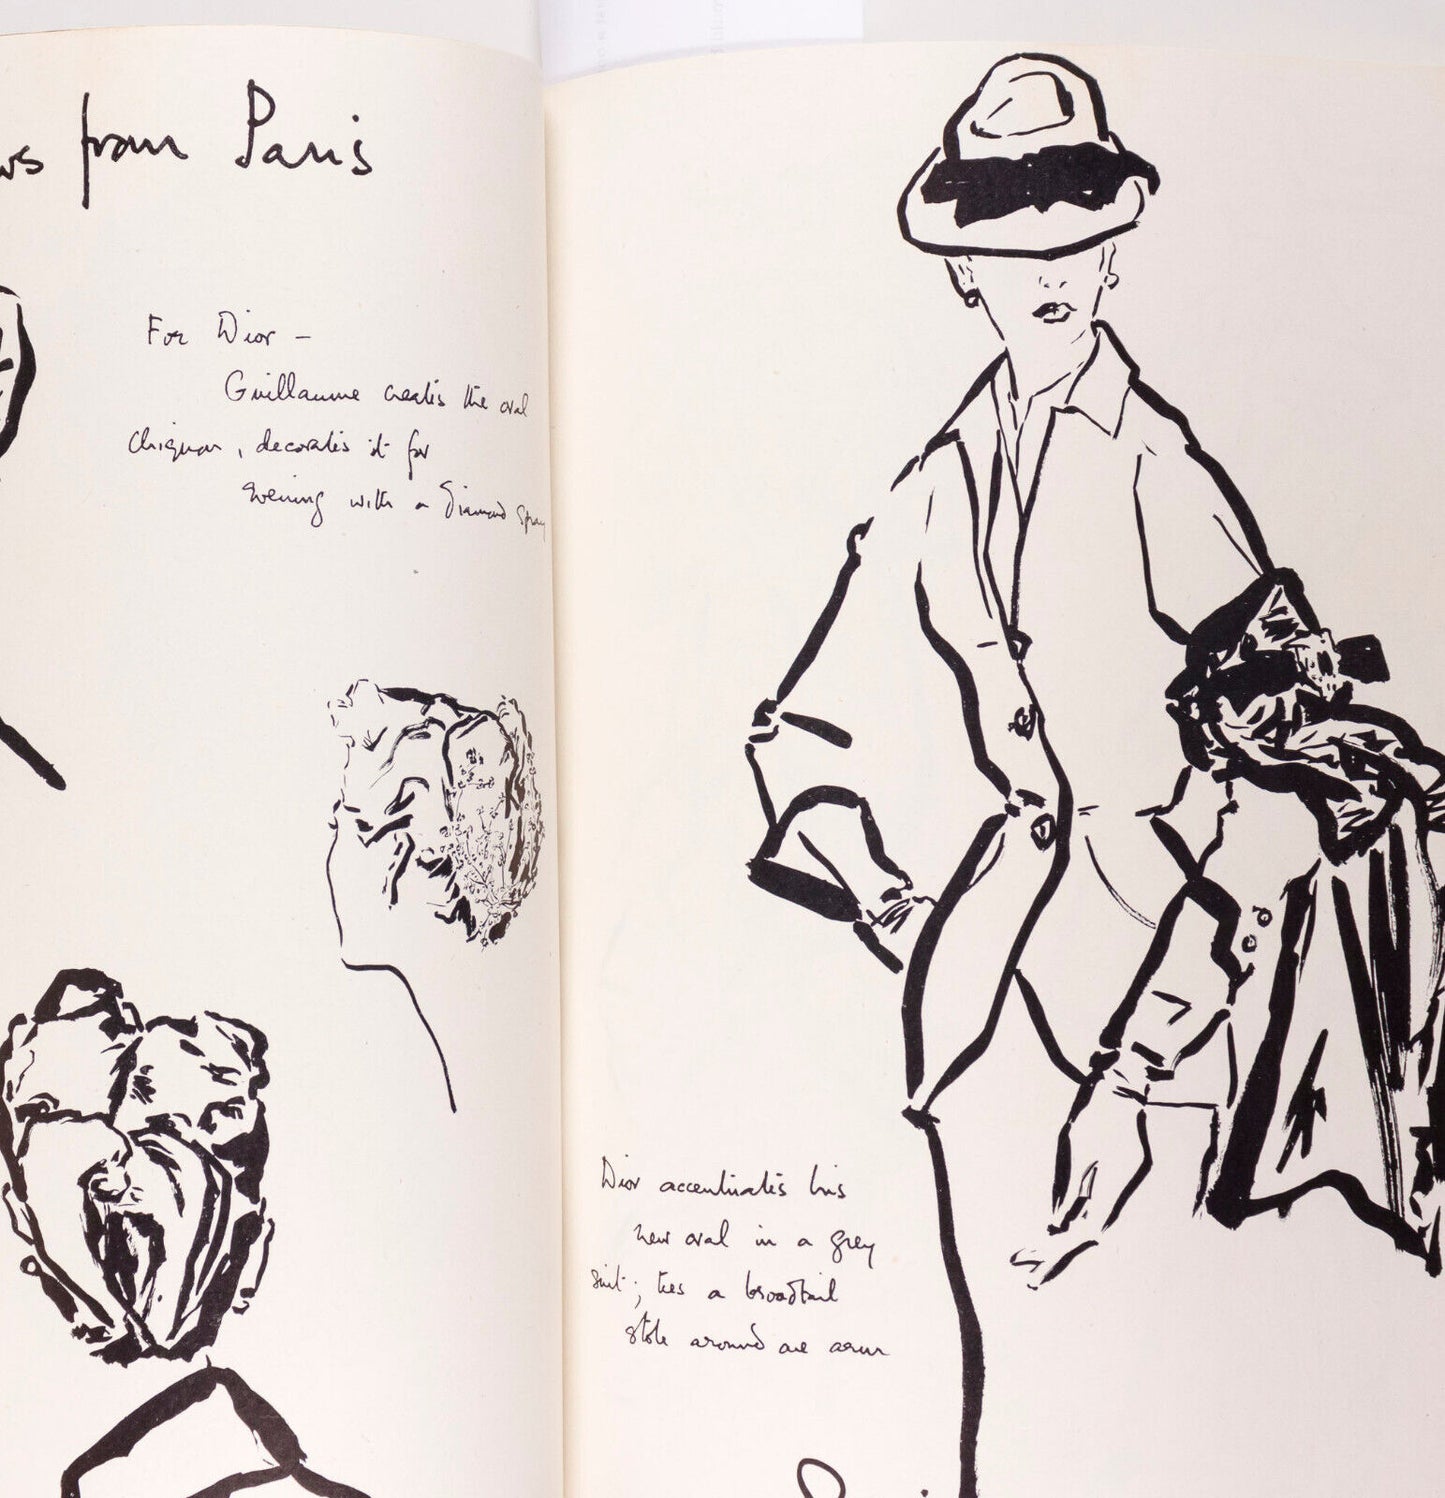 ws from Paris
For Dior –
Guillaume creates the oval
Chignon, decorates it for
evening with a diamond spray
Dior accentuates his
new oval in a grey
suit; ties a broadtail
stole around one arm